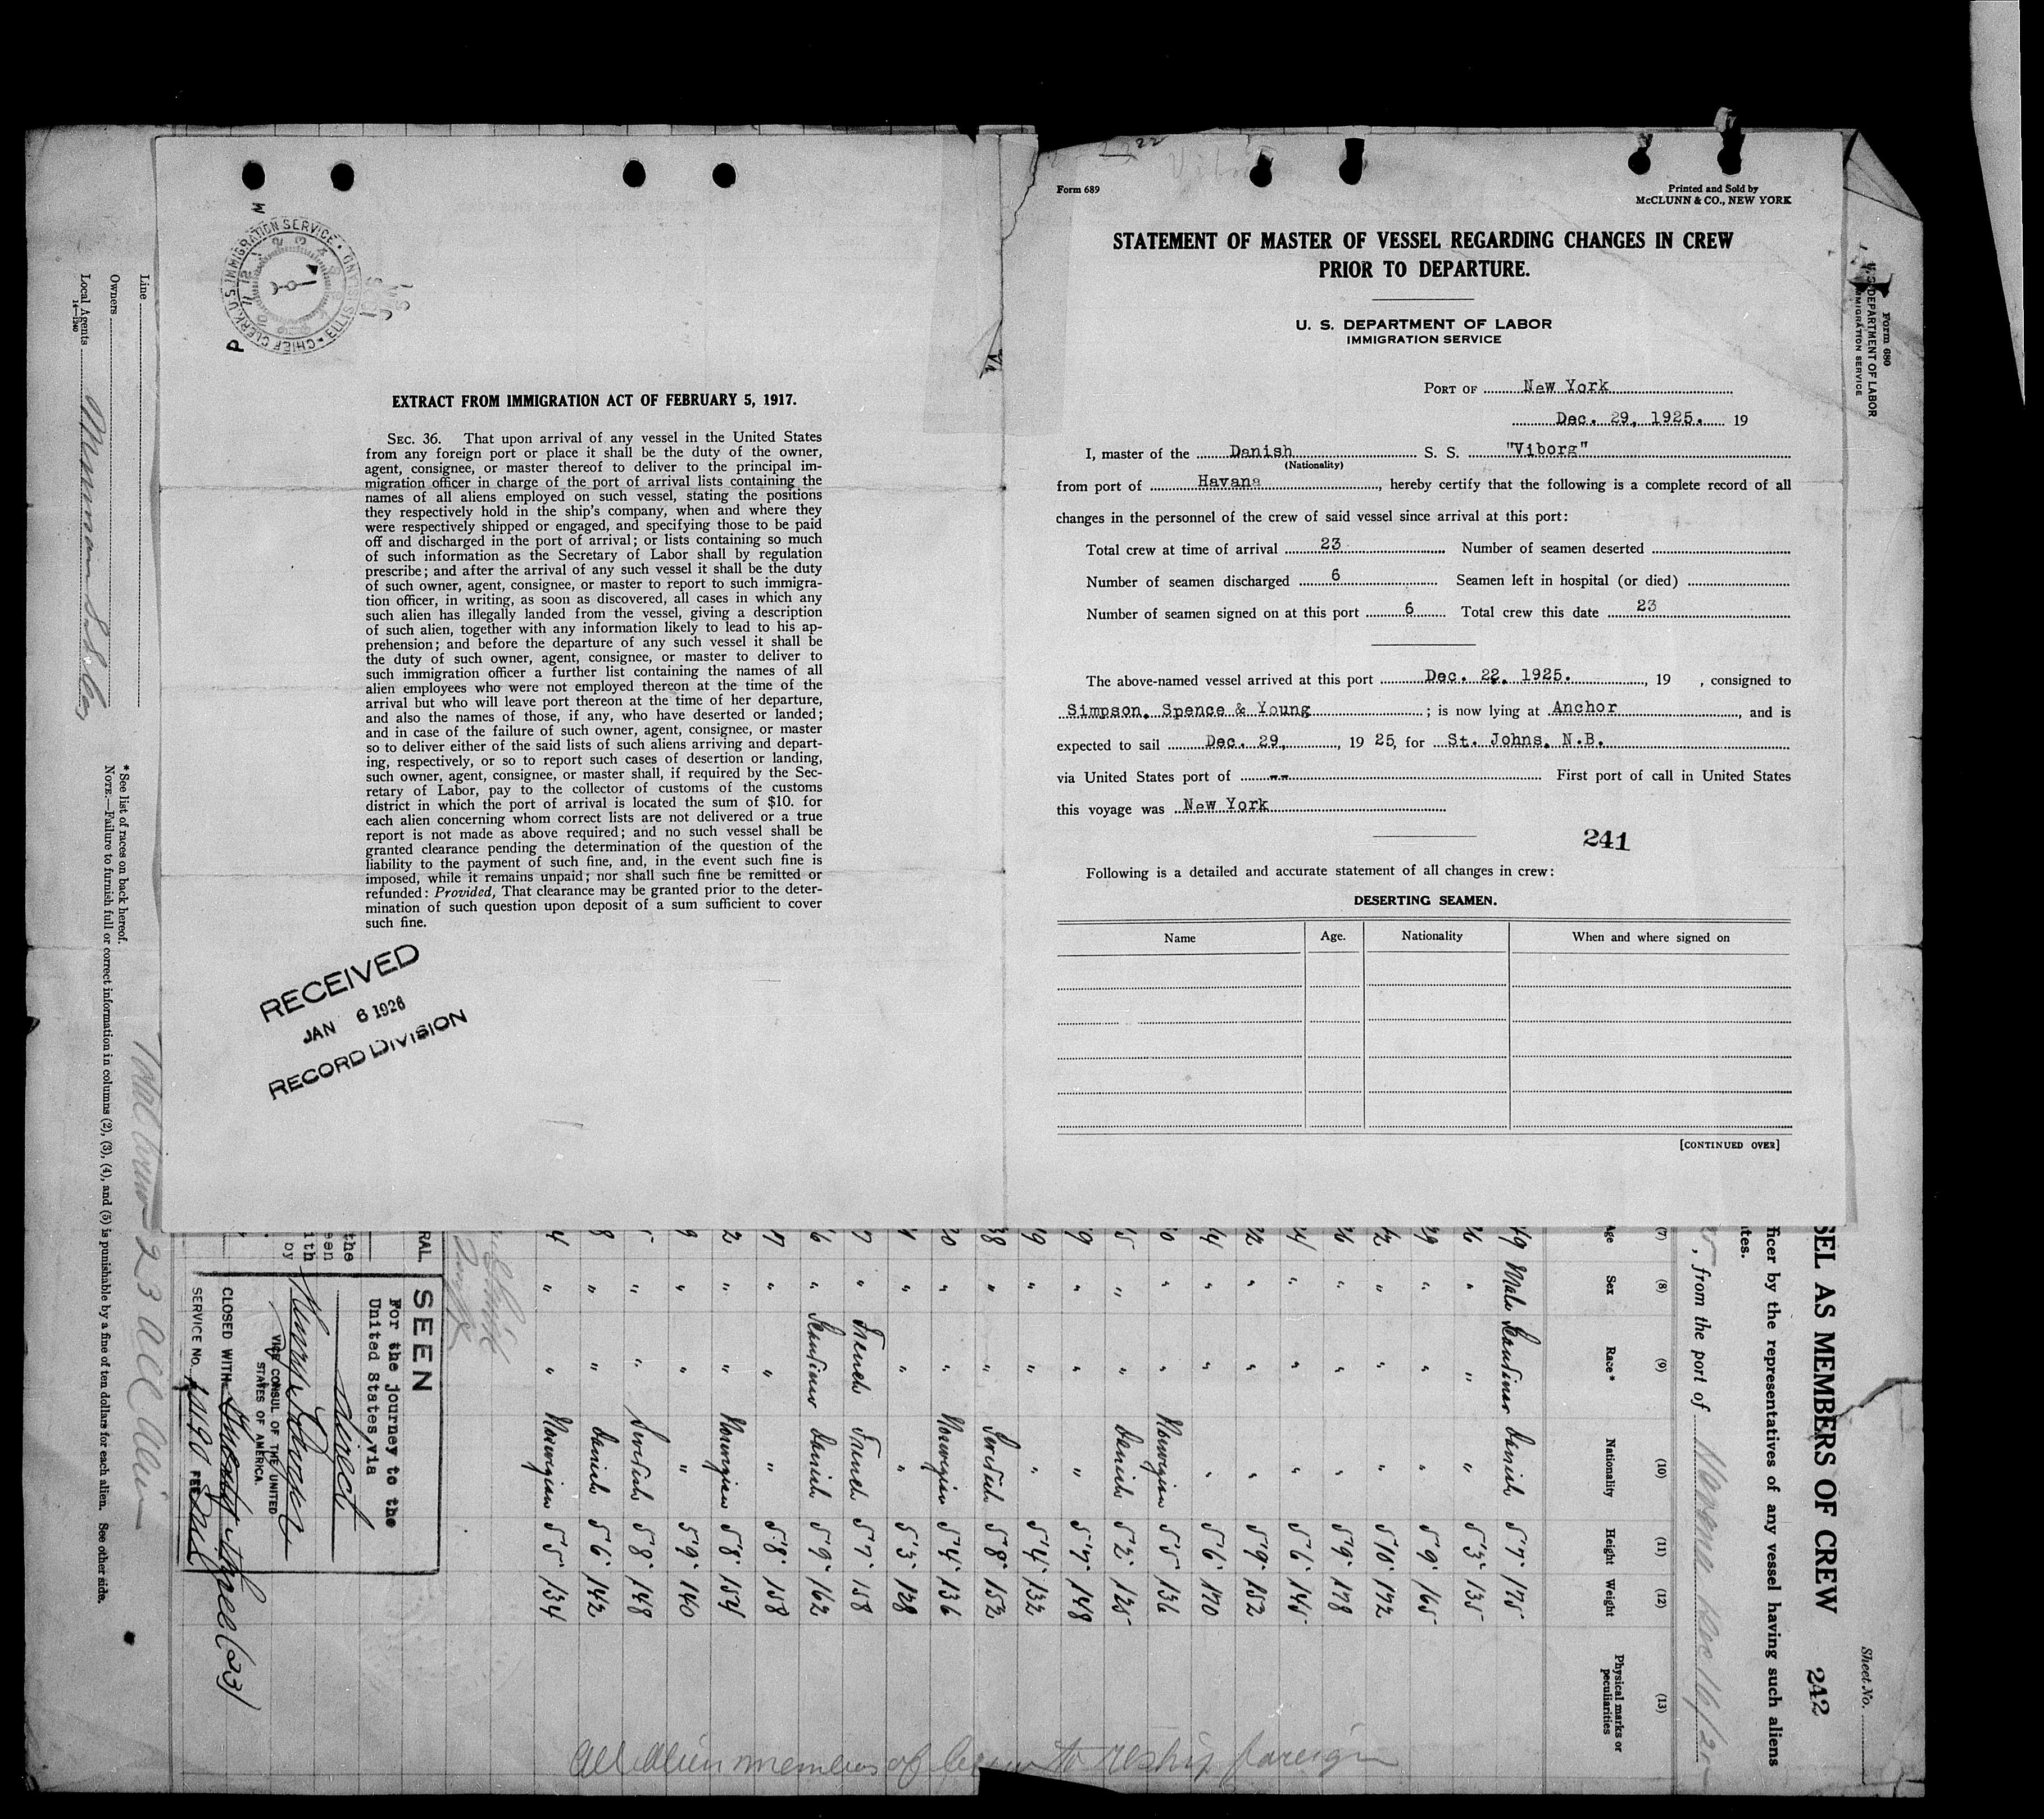 CHIEF CLERK, U.S. IMMIGRATION SERVICE · ELLIS ISLAND
EXTRACT FROM IMMIGRATION ACT OF FEBRUARY 5, 1917.
SEC. 36. That upon arrival of any vessel in the United States
from any foreign port or place it shall be the duty of the owner,
agent, consignee, or master thereof to deliver to the principal im-
migration officer in charge of the port of arrival lists containing the
names of all aliens employed on such vessel, stating the positions
they respectively hold in the ship's company, when and where they
were respectively shipped or engaged, and specifying those to be paid
off and discharged in the port of arrival; or lists containing so much
of such information as the Secretary of Labor shall by regulation
prescribe; and after the arrival of any such vessel it shall be the duty
of such owner, agent, consignee, or master to report to such immigra-
tion officer, in writing, as soon as discovered, all cases in which any
such alien has illegally landed from the vessel, giving a description
of such alien, together with any information likely to lead to his ap-
prehension; and before the departure of any such vessel it shall be
the duty of such owner, agent, consignee, or master to deliver to
such immigration officer a further list containing the names of all
alien employees who were not employed thereon at the time of the
arrival but who will leave port thereon at the time of her departure,
and also the names of those, if any, who have deserted or landed;
and in case of the failure of such owner, agent, consignee, or master
so to deliver either of the said lists of such aliens arriving and depart-
ing, respectively, or so to report such cases of desertion or landing,
such owner, agent, consignee, or master shall, if required by the Sec-
retary of Labor, pay to the collector of customs of the customs
district in which the port of arrival is located the sum of $10. for
each alien concerning whom correct lists are not delivered or a true
report is not made as above required; and no such vessel shall be
granted clearance pending the determination of the question of the
liability to the payment of such fine, and, in the event such fine is
imposed, while it remains unpaid; nor shall such fine be remitted or
refunded: Provided, That clearance may be granted prior to the deter-
mination of such question upon deposit of a sum sufficient to cover
such fine.
RECEIVED
JAN 6 1926
RECORD DIVISION
Form 689
Printed and Sold by
McCLUNN & CO., NEW YORK
STATEMENT OF MASTER OF VESSEL REGARDING CHANGES IN CREW
PRIOR TO DEPARTURE.
U. S. DEPARTMENT OF LABOR
IMMIGRATION SERVICE
PORT OF New York
Dec. 29, 1925. 19
I, master of the Danish S. S. "Viborg"
(Nationality)
from port of Havana, hereby certify that the following is a complete record of all
changes in the personnel of the crew of said vessel since arrival at this port:
Total crew at time of arrival 23 Number of seamen deserted
Number of seamen discharged 6 Seamen left in hospital (or died)
Number of seamen signed on at this port 6 Total crew this date 23
The above-named vessel arrived at this port Dec. 22, 1925., 19 , consigned to
Simpson, Spence & Young; is now lying at Anchor, and is
expected to sail Dec. 29, 1925, for St. Johns, N.B.
via United States port of -- First port of call in United States
this voyage was New York
241
Following is a detailed and accurate statement of all changes in crew:
DESERTING SEAMEN.
Name Age. Nationality When and where signed on
[CONTINUED OVER]
Form 680
U. S. DEPARTMENT OF LABOR
IMMIGRATION SERVICE
Sheet No.
SEL AS MEMBERS OF CREW 242
ficer by the representatives of any vessel having such aliens
tes.
, from the port of Havana Dec 16/25
(7) (8) (9) (10) (11) (12) (13)
ge Sex Race* Nationality Height Weight Physical marks or peculiarities
49 Male Scandinav Danish 5'7" 175
26 " " " 5'3" 135
29 " " " 5'9" 165
42 " " " 5'10" 172
26 " " " 5'9" 178
24 " " " 5'6" 145
22 " " " 5'9" 152
24 " " " 5'6" 170
0 " " Norwegian 5'5" 136
5 " " Danish 5'2" 125
9 " " " 5'7" 148
9 " " " 5'4" 132
38 " " Swedish 5'8" 152
20 " " Norwegian 5'4" 136
" " " 5'3" 128
7 " French French 5'7" 158
6 " Scandinav Danish 5'9" 162
" " " 5'8" 158
2 " " Norwegian 5'8" 154
9 " " " 5'9" 140
" " Swedish 5'8" 148
8 " " Danish 5'6" 142
4 " " Norwegian 5'5" 134
SEEN
For the journey to the
United States, via
direct
VICE CONSUL OF THE UNITED
STATES OF AMERICA.
CLOSED WITH
(23)
SERVICE NO.
FEE
Total crew 23 all alien
* See list of races on back hereof.
NOTE.—Failure to furnish full or correct information in columns (2), (3), (4), and (5) is punishable by a fine of ten dollars for each alien. See other side.
Line
Owners
Local Agents Munson S.S. Co.
14—1240
All alien members of crew to reship foreign